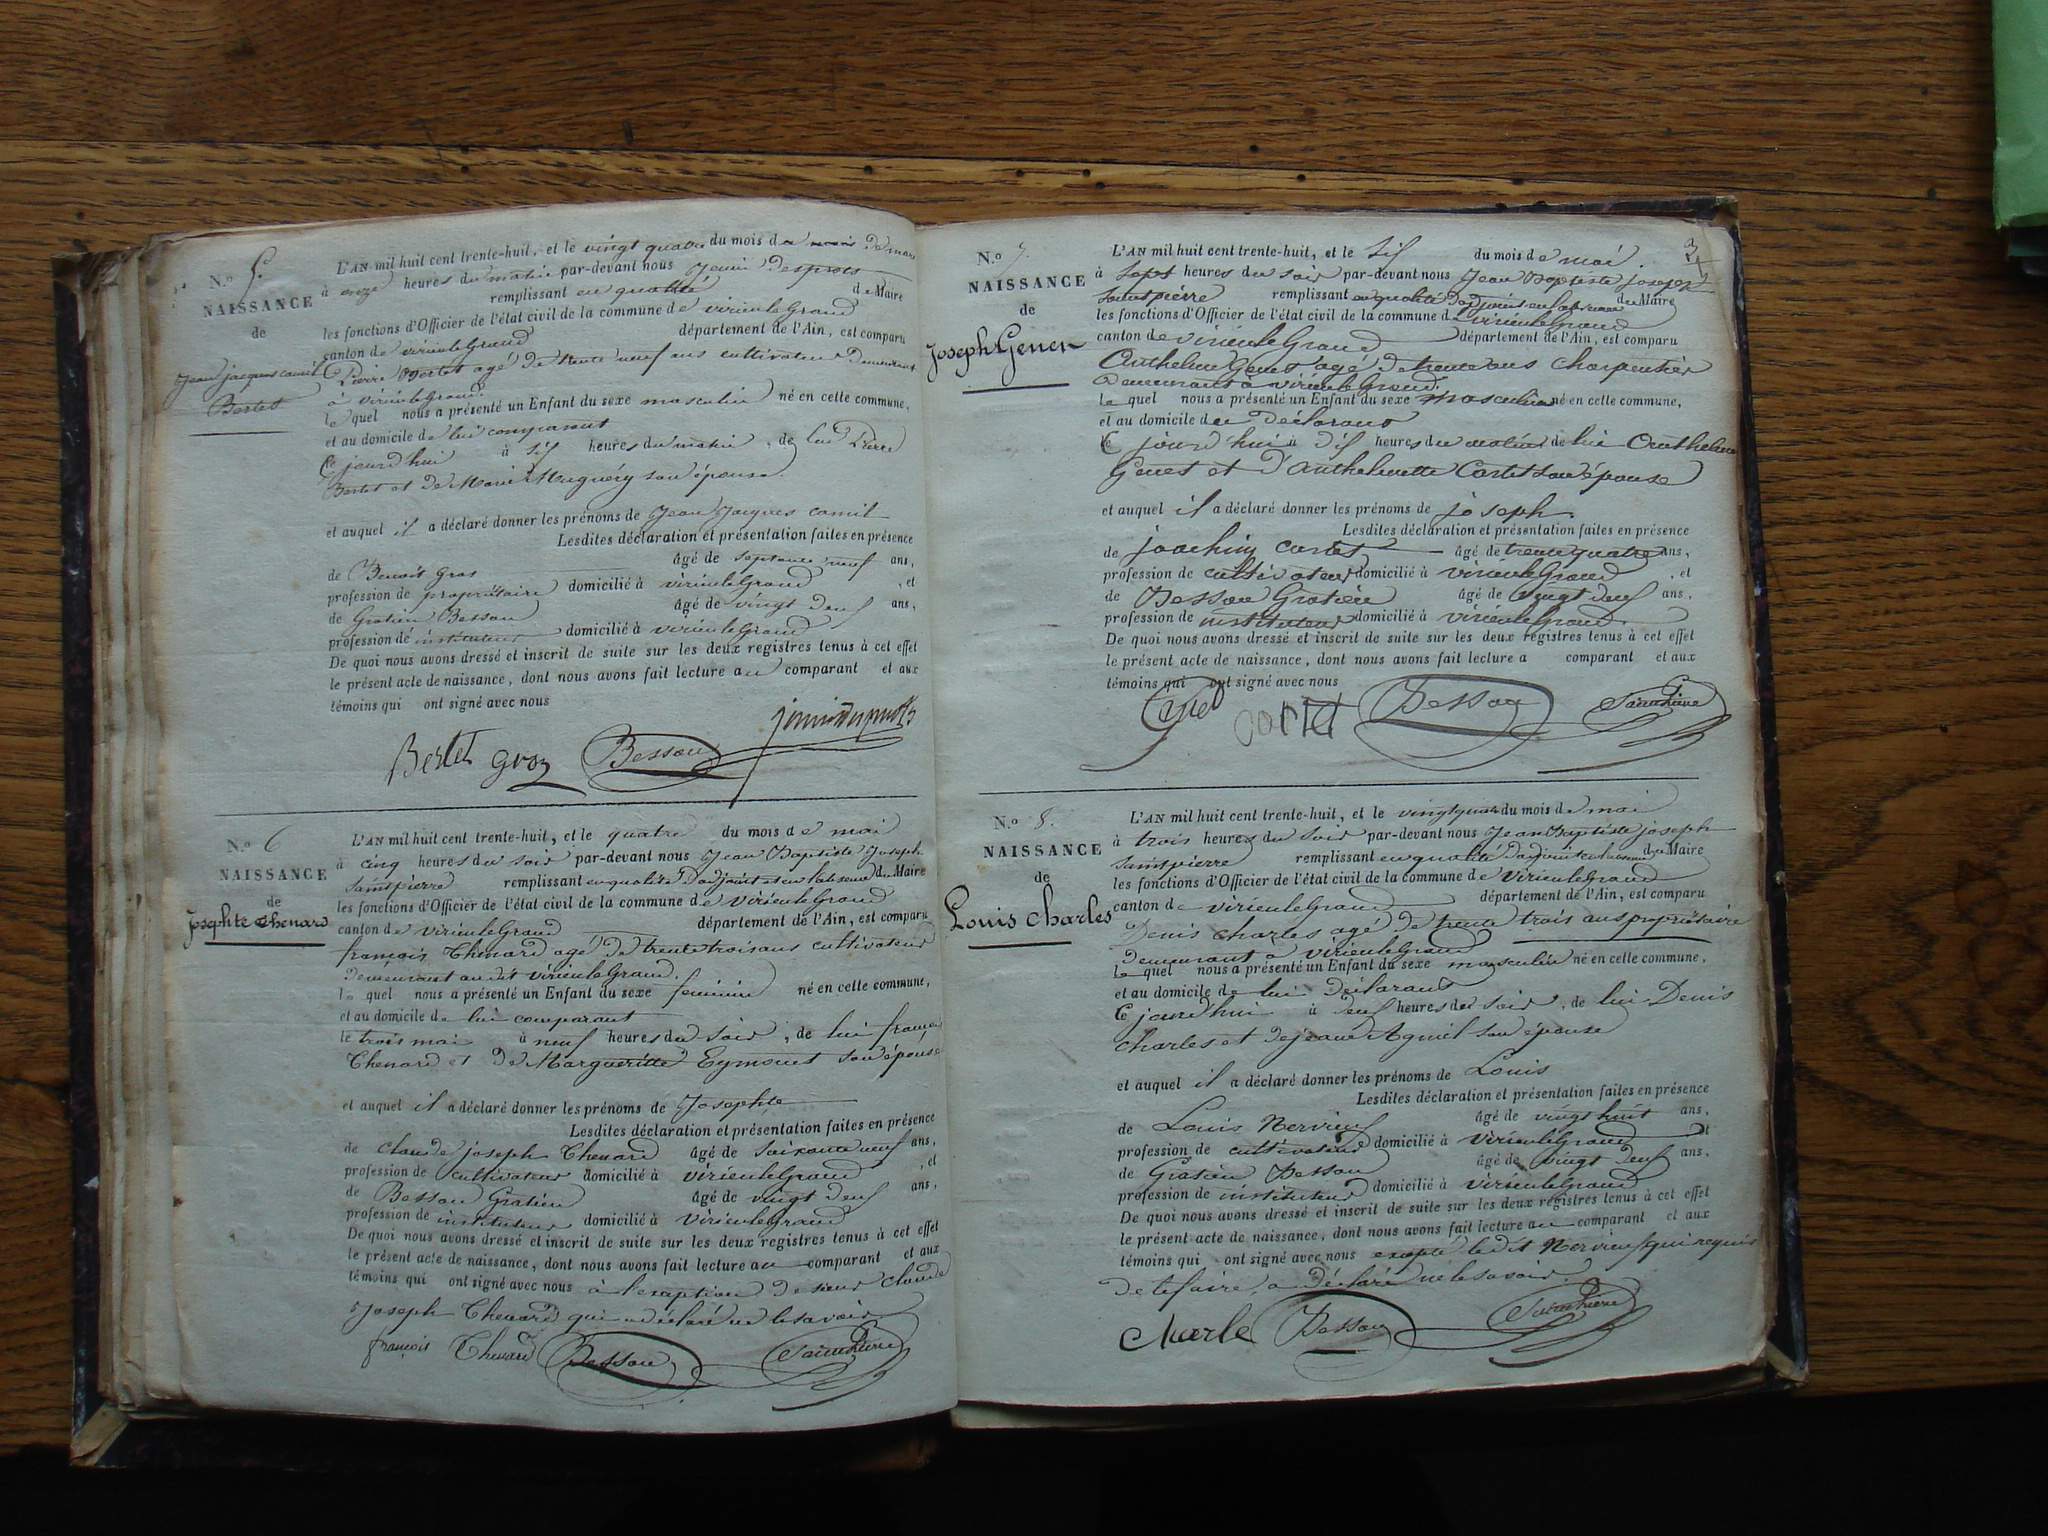 N.o 5.
NAISSANCE
de
Jean jacques camil
Bertet
L'AN mil huit cent trente-huit, et le vingt quatre du mois de mars
à onze heures du matin par-devant nous
remplissant en qualité de Maire
les fonctions d'Officier de l'état civil de la commune de virieu le Grand
canton de virieu le Grand département de l'Ain, est comparu
Pierre Bertet agé de trente neuf ans cultivateur demeurant
à virieu le Grand.
le quel nous a présenté un Enfant du sexe masculin né en cette commune,
et au domicile de lui comparant
Ce jourd'hui à six heures du matin, de lui Pierre
Bertet et de Marie Muguéry son épouse
et auquel il a déclaré donner les prénoms de Jean Jacques camil
Lesdites déclaration et présentation faites en présence
de Benoit Gros âgé de septante neuf ans,
profession de propriétaire domicilié à virieu le Grand, et
de Gratien Besson âgé de vingt deux ans,
profession de instituteur domicilié à virieu le Grand
De quoi nous avons dressé et inscrit de suite sur les deux registres tenus à cet effet
le présent acte de naissance, dont nous avons fait lecture au comparant et aux
témoins qui ont signé avec nous
Bertet gros Besson
N.o 6
NAISSANCE
de
Josephte Thenard
L'AN mil huit cent trente-huit, et le quatre du mois de mai
à cinq heures du soir par-devant nous Jean Baptiste Joseph
Saintpierre remplissant en qualité d'adjoint et en l'absence du Maire
les fonctions d'Officier de l'état civil de la commune de virieu le Grand
canton de virieu le Grand département de l'Ain, est comparu
françois Thenard agé de trente trois ans cultivateur
demeurant au dit virieu le Grand.
le quel nous a présenté un Enfant du sexe feminin né en cette commune,
et au domicile de lui comparant
le trois mai à neuf heures du soir, de lui françois
Thenard et de Margueritte Eymonet son épouse
et auquel il a déclaré donner les prénoms de Josephte
Lesdites déclaration et présentation faites en présence
de claude joseph Thenard âgé de soixante neuf ans,
profession de cultivateur domicilié à virieu le Grand, et
de Besson Gratien âgé de vingt deux ans,
profession de instituteur domicilié à virieu le Grand
De quoi nous avons dressé et inscrit de suite sur les deux registres tenus à cet effet
le présent acte de naissance, dont nous avons fait lecture au comparant et aux
témoins qui ont signé avec nous à l'exeption de sieur claude
Joseph Thenard qui a déclaré ne le savoir
françois Thenard Besson Saintpierre
3
N.o 7.
NAISSANCE
de
Joseph Genet
L'AN mil huit cent trente-huit, et le six du mois de mai.
à sept heures du soir par-devant nous Jean Baptiste joseph
Saintpierre remplissant en qualité d'adjoint en l'absence du Maire
les fonctions d'Officier de l'état civil de la commune de virieu le Grand
canton de virieu le Grand département de l'Ain, est comparu
Anthelme Genet agé de trente ans charpentier
demeurant à virieu le Grand.
le quel nous a présenté un Enfant du sexe masculin né en cette commune,
et au domicile de déclarant
Ce jourd'hui à dix heures du matin de lui Anthelme
Genet et d'anthelmette Cartet son épouse
et auquel il a déclaré donner les prénoms de joseph.
Lesdites déclaration et présentation faites en présence
de joachim cartet âgé de trente quatre ans,
profession de cultivateur domicilié à virieu le Grand, et
de Besson Gratien âgé de vingt deux ans,
profession de instituteur domicilié à virieu le Grand.
De quoi nous avons dressé et inscrit de suite sur les deux registres tenus à cet effet
le présent acte de naissance, dont nous avons fait lecture a comparant et aux
témoins qui ont signé avec nous
cartet Besson Saintpierre
N.o 8.
NAISSANCE
de
Louis Charles
L'AN mil huit cent trente-huit, et le vingt quatre du mois de mai
à trois heures du soir par-devant nous Jean Baptiste joseph
Saintpierre remplissant en qualité d'adjoint en l'absence du Maire
les fonctions d'Officier de l'état civil de la commune de virieu le Grand
canton de virieu le Grand département de l'Ain, est comparu
Denis charles agé de trente trois ans propriétaire
demeurant à virieu le Grand
le quel nous a présenté un Enfant du sexe masculin né en cette commune,
et au domicile de lui déclarant
Ce jourd'hui à deux heures du soir, de lui Denis
charles et de jeanne Aguil son épouse
et auquel il a déclaré donner les prénoms de Louis
Lesdites déclaration et présentation faites en présence
de Louis Nervieux âgé de vingt huit ans,
profession de cultivateur domicilié à virieu le Grand et
de Gratien Besson âgé de vingt deux ans,
profession de instituteur domicilié à virieu le Grand
De quoi nous avons dressé et inscrit de suite sur les deux registres tenus à cet effet
le présent acte de naissance, dont nous avons fait lecture au comparant et aux
témoins qui ont signé avec nous exepté ledit Nervieux qui requis
de le faire, a déclaré ne le savoir.
Charle Besson Saintpierre